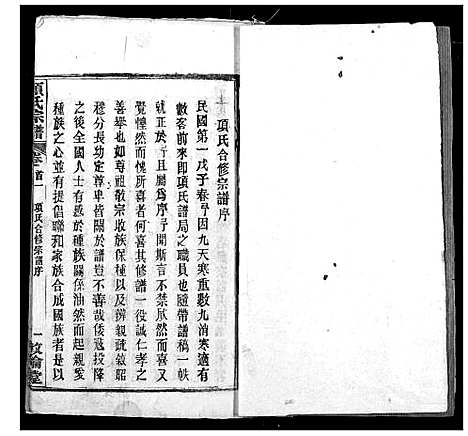 項氏合修宗譜序
民國第一戊子春予因九天寒重數九消寒適有
數客前來即項氏譜局之職員也隨帶譜稿一帙
就正於予且屬為序予聞斯言不禁欣然而喜又
覺惶然而愧所喜者何喜其修譜一役誠仁孝之
善舉也如尊祖敬宗收族保種以及辨親疏敘昭
穆分長幼定尊卑皆關於譜豈不善哉倭寇投降
之後全國人士有感於種族關係油然而起親愛
種族之心並有提倡聯和家族合成國族者是以
項氏宗譜
卷首一
項氏合修宗譜序
一
敦倫堂